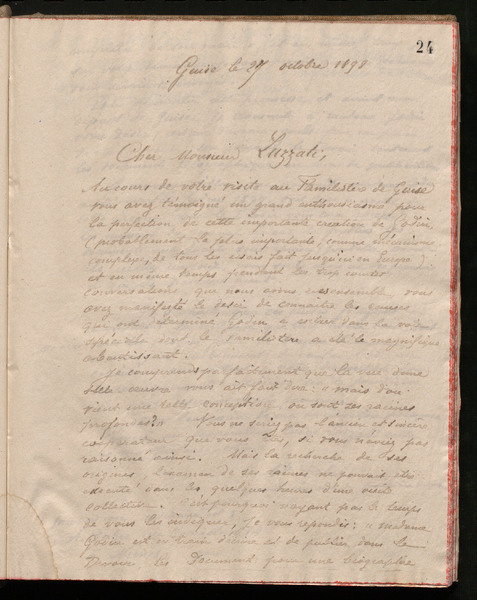 24
Guise le 27 octobre 1898
Cher Monsieur Luzzati,
Au cours de votre visite au Familistère de Guise
vous avez témoigné un grand enthousiasme pour
la perfection de cette importante création de Godin
(probablement la plus importante, comme
complexe, de tous les essais fait jusqu'ici en Europe)
et en même temps pendant les trop courtes
conversations que nous eûmes ensemble vous
avez manifesté le désir de connaître les causes
qui ont déterminé Godin à entrer dans la voie
spéciale dont le familistère a été le magnifique
aboutissant.
Je comprends parfaitement que la vue d'une
telle œuvre vous ait fait dire : « mais d'où
vient une telle conception, où sont ses racines
profondes ? » Vous ne seriez pas l'ancien et sincère
coopérateur que vous êtes, si vous n'aviez pas
raisonné ainsi. Mais la recherche de ses
origines, l'examen de ses racines ne pouvait être
exécuté dans les quelques heures d'une visite
collective. C'est pourquoi n'ayant pas le temps
de vous les indiquer, je vous répondis : « Madame
Godin est en train d'écrire et de publier dans le
Devoir les Document pour une biographie